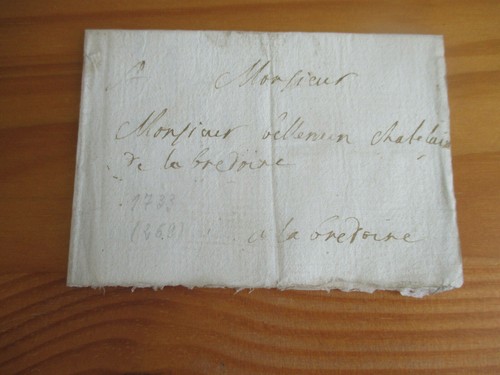 Monsieur
Monsieur Villemin Chatelain
de la bredoire
1733
a la bredoire